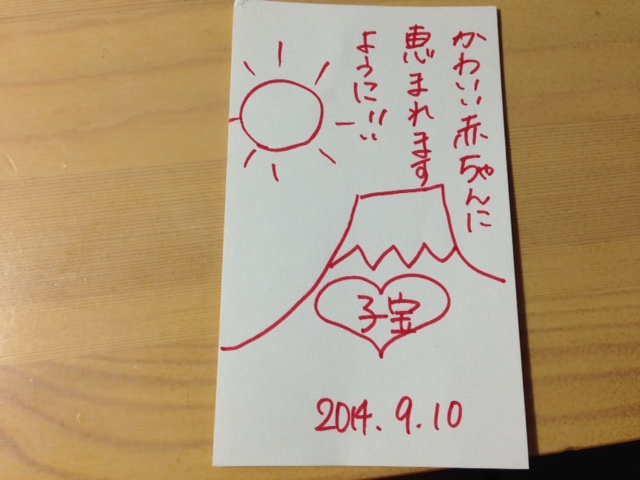 かわいい赤ちゃんに
恵まれます
ように!!!
子宝
2014.9.10